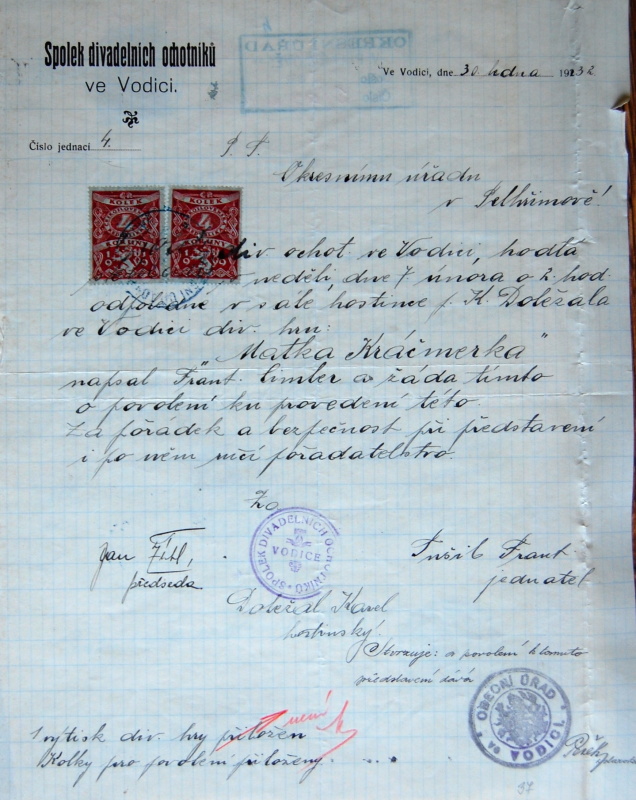 Spolek divadelních ochotníků
ve Vodici.
OKRESNÍ ÚŘAD
Ve Vodici, dne 30 ledna 1932
Číslo jednací 4.
P. T.
Okresnímu úřadu
v Pelhřimově!
KOLEK
4
KOLEK
4
div. ochot. ve Vodici, hodlá
neděli, dne 7. února o 2. hod.
odpoledne v sále hostince p. K. Doležala
ve Vodici div. hru:
"Matka Kráčmerka"
napsal Frant. Simler a žáda tímto
o povolení ku provedení této.
Za pořádek a bezpečnost při představení
i po něm ručí pořadatelstvo.
Za
SPOLEK DIVADELNÍCH OCHOTNÍKŮ
VODICE
Jan
předseda
Tušil Frant.
jednatel
Doležal Karel
hostinský
Stvrzuje: a povolení k tomuto
představení dává
OBECNÍ ÚŘAD
VODICI
není
1 výtisk div. hry přiložen
Kolky pro povolení přiloženy.
97